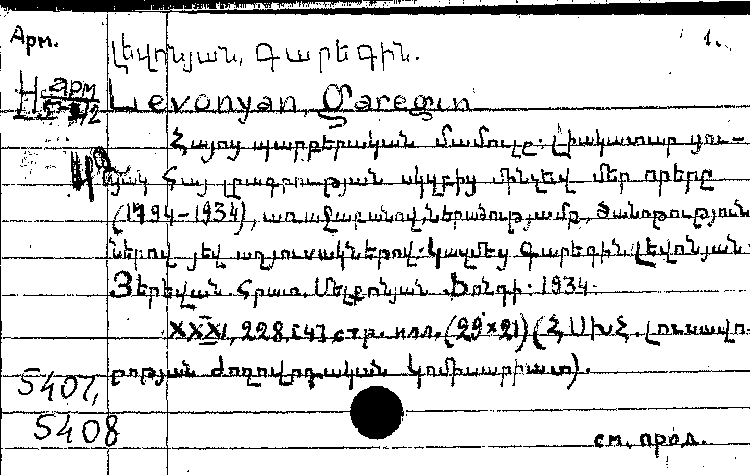 Арм. Լեվոնյան, Գարեգին. 1.
Н арм
5-2/2 Levonyan, Garegin
Հայոց պարբերական մամուլը: Լիակատար ցու-
ցակ հայ լրագրության սկզբից մինչեվ մեր որերը
(1794-1934), առաջաբանով, ներածությամբ, ծանոթություն
ներով յեվ աղյուսակներով. Կազմեց Գարեգին Լեվոնյան.
Յերեվան. Հրատ. Մելքոնյան Ֆոնդի: 1934.
XXXI, 228, [4] стр. илл. (29×21) (ՀՍԽՀ. Լուսավո-
րության ժողովրդական կոմիսարիատ).
5407,
5408
см. прод.